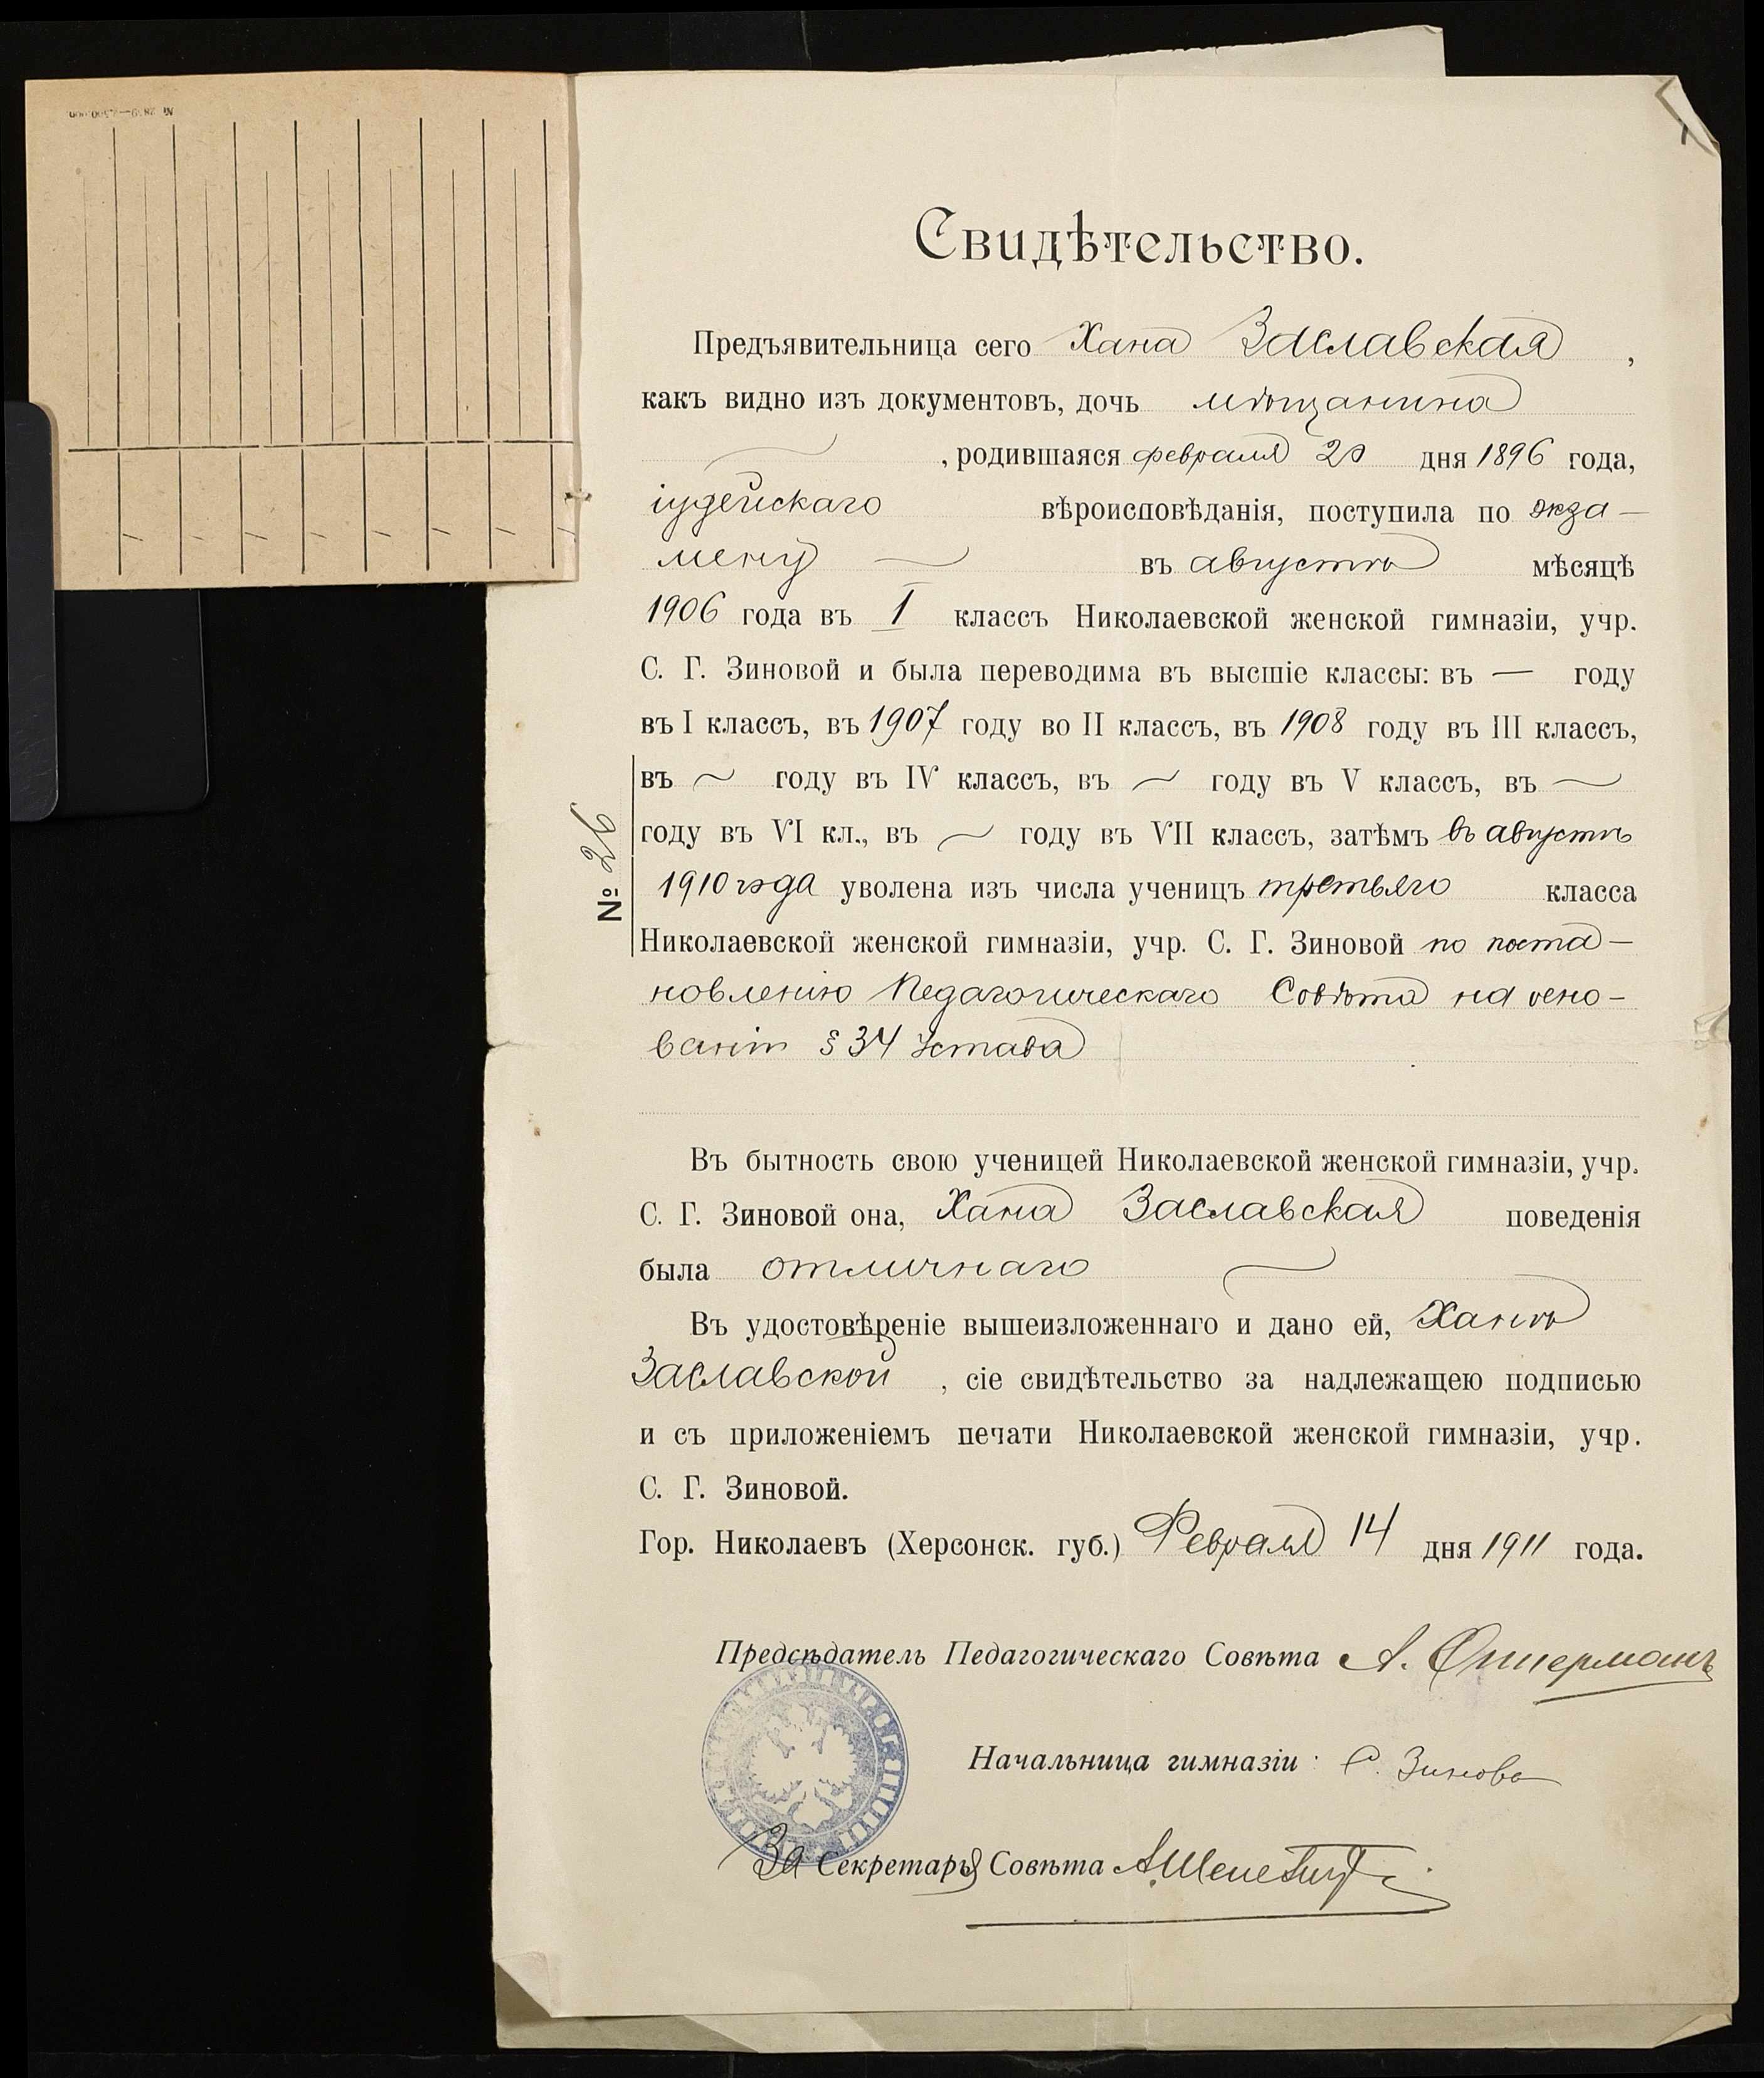 № 2839—2.500.000.
Свидѣтельство.
Предъявительница сего Хана Заславская ,
какъ видно изъ документовъ, дочь мѣщанина
, родившаяся февраля 20 дня 1896 года,
іудейскаго вѣроисповѣданія, поступила по экза—
мену въ августѣ мѣсяцѣ
1906 года въ I классъ Николаевской женской гимназіи, учр.
С. Г. Зиновой и была переводима въ высшіе классы: въ — году
въ I классъ, въ 1907 году во II классъ, въ 1908 году въ III классъ,
въ ~ году въ IV классъ, въ ~ году въ V классъ, въ ~
году въ VI кл., въ ~ году въ VII классъ, затѣмъ въ августѣ
1910 года уволена изъ числа ученицъ третьяго класса
Николаевской женской гимназіи, учр. С. Г. Зиновой по поста—
новленію Педагогическаго Совѣта на осно-
ваніи § 34 Устава
№ 26
Въ бытность свою ученицей Николаевской женской гимназіи, учр.
С. Г. Зиновой она, Хана Заславская поведенія
была отличнаго
Въ удостовѣреніе вышеизложеннаго и дано ей, Ханѣ
Заславской , сіе свидѣтельство за надлежащею подписью
и съ приложеніемъ печати Николаевской женской гимназіи, учр.
С. Г. Зиновой.
Гор. Николаевъ (Херсонск. губ.) Февраля 14 дня 1911 года.
Предсѣдатель Педагогическаго Совѣта А.
Начальница гимназіи: С. Зинова
За Секретаря Совѣта